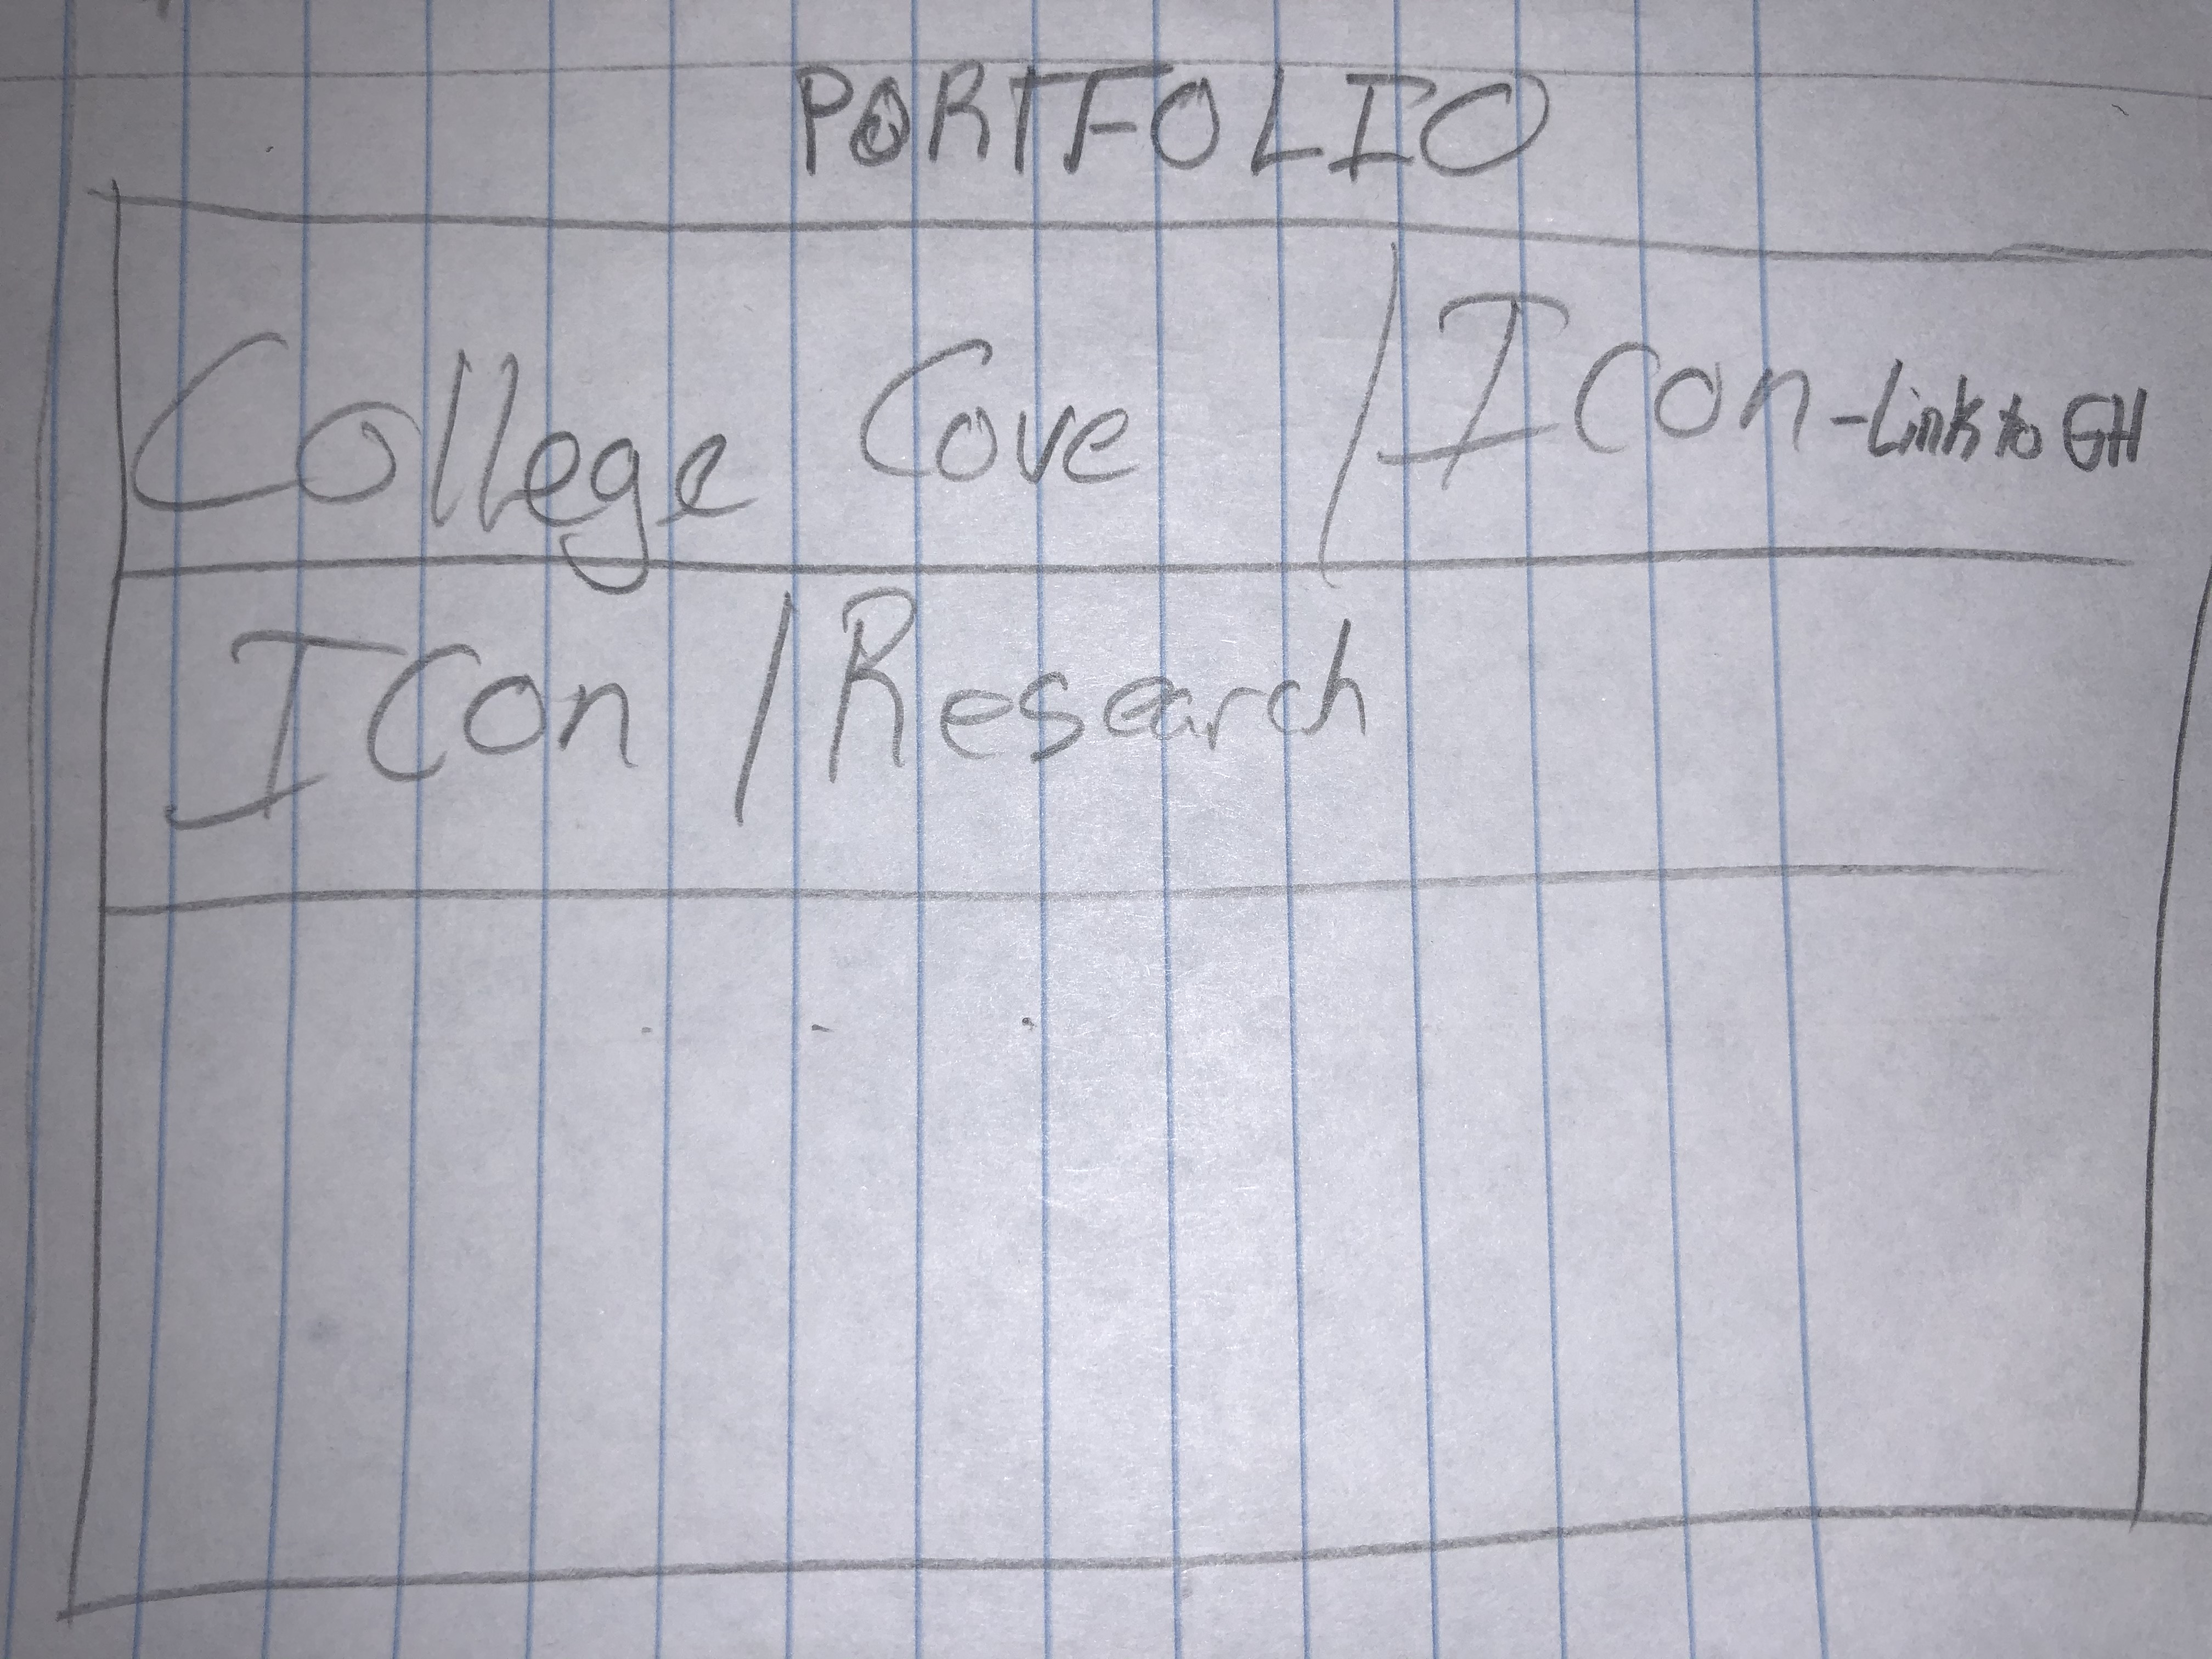 PORTFOLIO
College Cove / Icon - Link to GH
Icon / Research